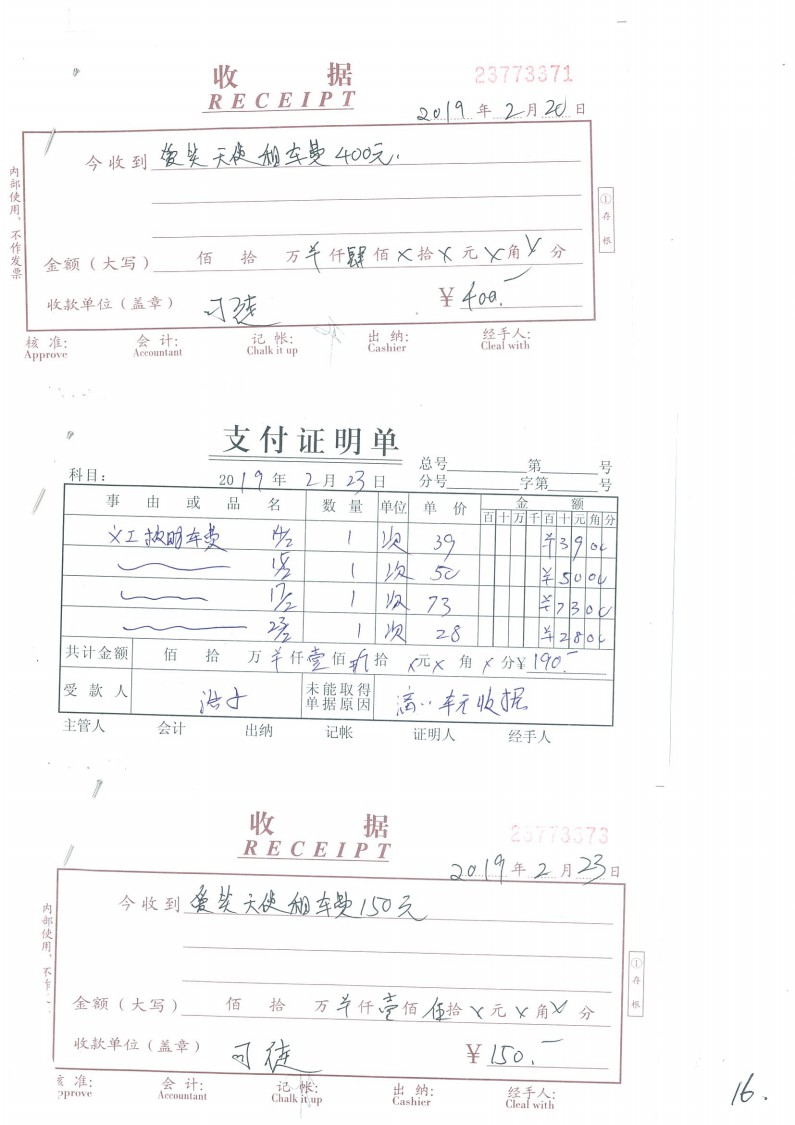 收 据 23773371
RECEIPT
2019年2月20日
今收到 爱笑天使租车费400元.
内部使用，不作发票
①存根
金额（大写） 佰 拾 万 羊 仟 肆 佰 x 拾 x 元 x 角 x 分
收款单位（盖章） ¥ 400.-
核 准: 会 计: 记 帐: 出 纳: 经手人:
Approve Accountant Chalk it up Cashier Cleal with
支付证明单
总号 第 号
科目: 2019年2月23日 分号 字第 号
事 由 或 品 名 数 量 单位 单 价 金 额
百 十 万 千 百 十 元 角 分
义工 车费 14/2 1 次 39 ¥3900
15/2 1 次 50 ¥5000
17/2 1 次 73 ¥7300
23/2 1 次 28 ¥2800
共计金额 佰 拾 万 羊 仟 壹 佰 玖 拾 x 元 x 角 x 分 ¥ 190.-
受 款 人 未能取得单据原因 车无收据
主管人 会计 出纳 记帐 证明人 经手人
收 据 23773373
RECEIPT
2019年2月23日
今收到 爱笑天使租车费150元
内部使用，不作
①存根
金额（大写） 佰 拾 万 羊 仟 壹 佰 伍 拾 x 元 x 角 x 分
收款单位（盖章） ¥ 150.-
准: 会 计: 记 帐: 出 纳: 经手人:
pprove Accountant Chalk it up Cashier Cleal with
16.